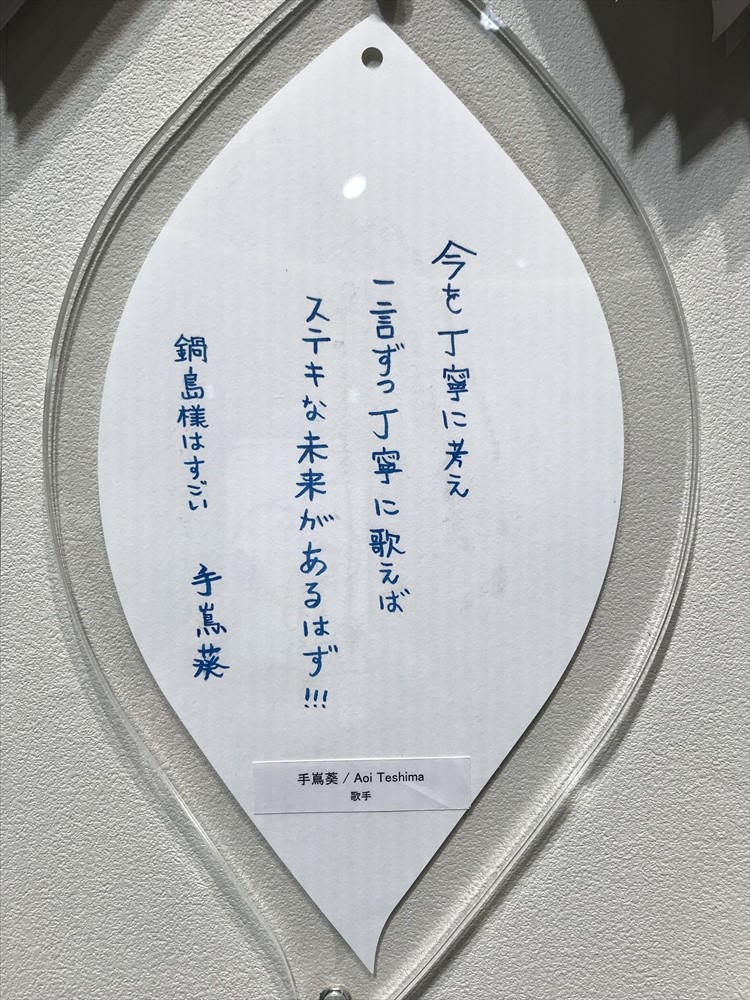 今を丁寧に考え
一言ずつ丁寧に歌えば
ステキな未来があるはず!!!
鍋島様はすごい
手嶌葵
手嶌葵 / Aoi Teshima
歌手